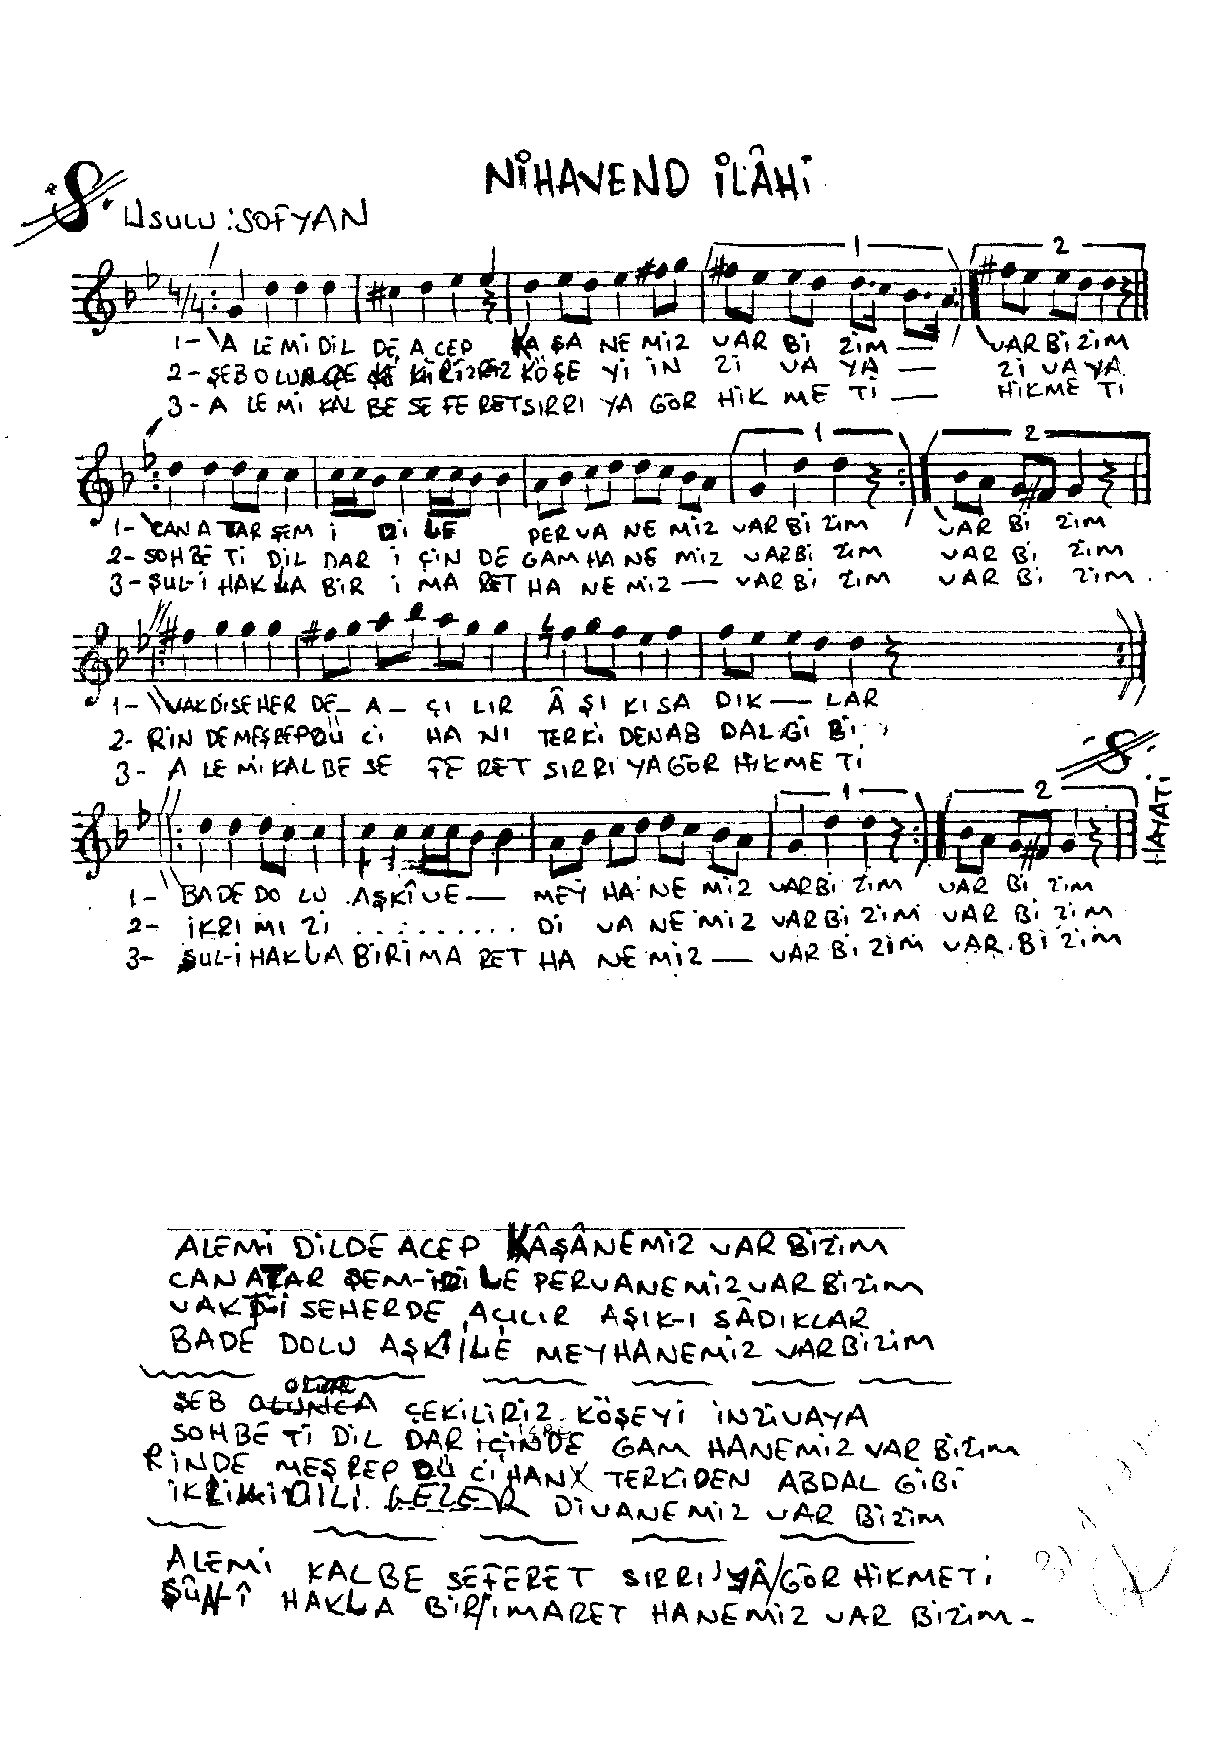 NİHAVEND İLÂHİ
USULU : SOFYAN
4/4
1 2
1- A LEMİ DİL DE ACEP KA ŞA NE MİZ VAR Bİ ZİM — VAR Bİ ZİM
2- ŞEB OLUR ÇE Kİ LİRİZ KÖŞE Yİ İN Zİ VA YA — Zİ VA YA
3- A LE Mİ KAL BE SE FE RET SIRRI YA GÖR HİK ME Tİ — HİKME Tİ
1 2
1- CAN A TAR ŞEM İ Dİ LE PER VA NE MİZ VAR Bİ ZİM VAR Bİ ZİM
2- SOHBE Tİ DİL DAR İ ÇİN DE GAM HA NE MİZ VARBİ ZİM VAR Bİ ZİM
3- ŞUL-İ HAK LA BİR İ MA RET HA NE MİZ — VAR Bİ ZİM VAR Bİ ZİM.
1- VAKDİ SEHER DE- A- ÇI LIR Â ŞI KI SA DIK — LAR
2- RİN DE MEŞREP DÜ Cİ HA NI TERKİ DEN AB DAL Gİ Bİ
3- A LE Mİ KAL BE SE FE RET SIRRI YA GÖR HİKME Tİ
1 2
HAYATİ
1- BADE DO LU AŞKÎ VE — MEY HA NE MİZ VARBİ ZİM VAR Bİ ZİM
2- İKRİ Mİ Zİ ......... Dİ VA NE MİZ VAR Bİ ZİM VAR Bİ ZİM
3- ŞUL-İ HAKLA BİR İMA RET HA NE MİZ — VAR Bİ ZİM VAR Bİ ZİM
ALEMİ DİLDE ACEP KÂŞÂNEMİZ VAR BİZİM
CAN ATAR ŞEM-İ DİLE PERVANEMİZ VAR BİZİM
VAKT-İ SEHERDE AÇILIR AŞIK-I SÂDIKLAR
BADE DOLU AŞK İLE MEYHANEMİZ VAR BİZİM
ŞEB OLUR ÇEKİLİRİZ KÖŞEYİ İNZİVAYA
SOHBE Tİ DİL DAR İÇİNDE GAM HANEMİZ VAR BİZİM
RİNDE MEŞREP DÜ CİHAN TERKİDEN ABDAL GİBİ
GEZER DİVANEMİZ VAR BİZİM
ALEMİ KALBE SEFERET SIRRI YÂ GÖR HİKMETİ
HAKLA BİR İMARET HANEMİZ VAR BİZİM-